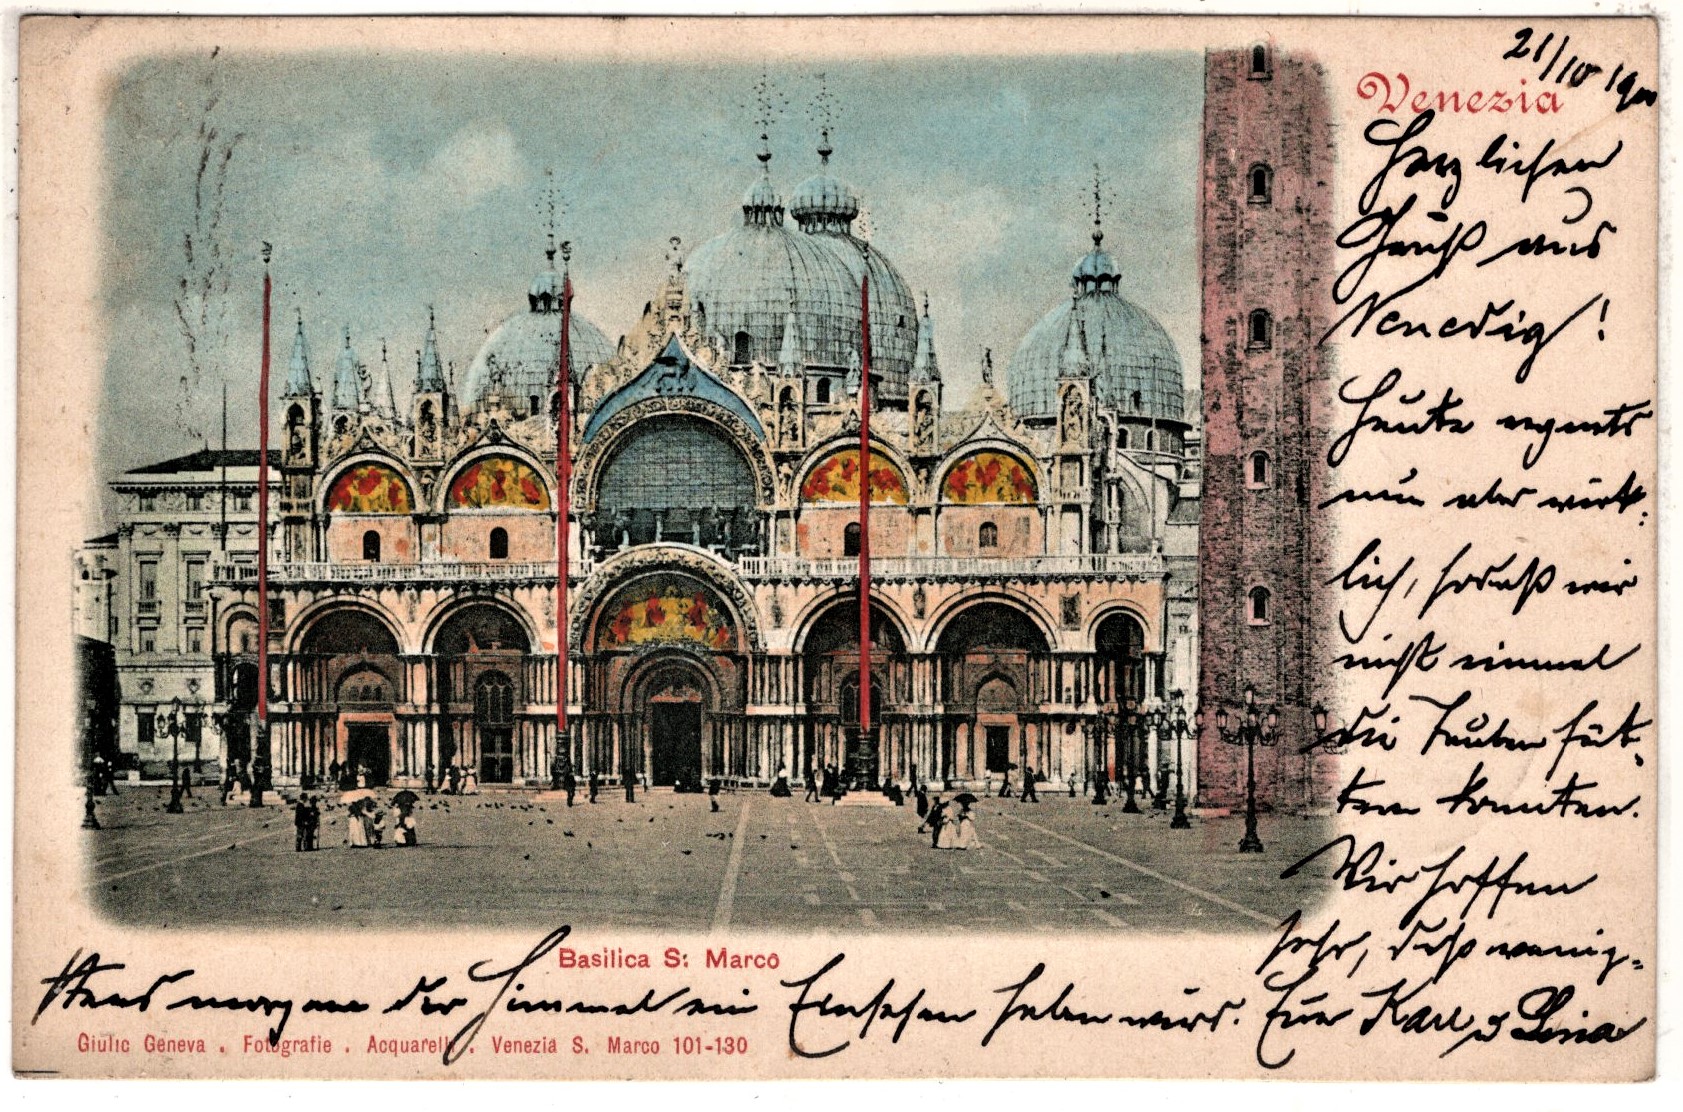 21/10 1900
Venezia
Herzlichen
Gruß aus
Venedig!
Heute regnets
nun aber wirk-
lich, sodaß wir
nicht einmal
die Tauben füt-
tern konnten.
Wir hoffen
sehr, daß wenig-
stens morgen der Himmel ein Einsehen haben wird. Eure Karl u Lina
Basilica S: Marco
Giulio Geneva . Fotografie . Acquarelli . Venezia S. Marco 101-130